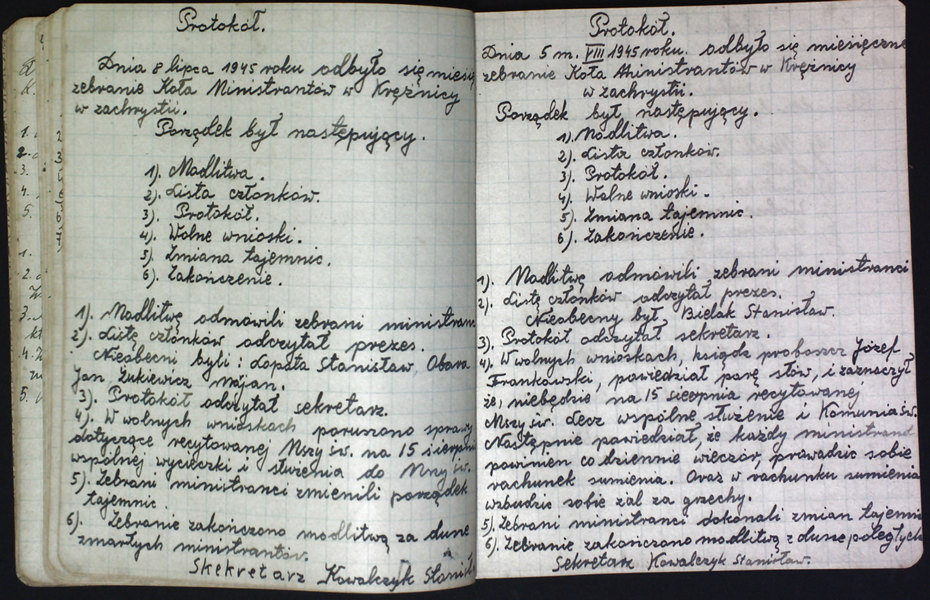 Protokół.
Dnia 8 lipca 1945 roku odbyło się miesię
zebranie Koła Ministrantów w Krężnicy
w zachrystii.
Porządek był następujący.
1). Modlitwa.
2). Lista członków.
3). Protokół.
4). Wolne wnioski.
5). Zmiana tajemnic.
6). Zakończenie.
1). Modlitwę odmówili zebrani ministran
2). Listę członków odczytał prezes.
Nieobecni byli: Łopata Stanisław, Obara
Jan, Żukiewicz Marjan.
3). Protokół odczytał sekretarz.
4). W wolnych wnioskach poruszono sprawy
dotyczące recytowanej Mszy św. na 15 sierpnia
wspólnej wycieczki i służenia do Mszy św.
5). Zebrani ministranci zmienili porządek
tajemnic.
6). Zebranie zakończono modlitwą za dusze
zmarłych ministrantów.
Skekretarz Kowalczyk Stanisł
Protokół.
Dnia 5 m. VIII 1945 roku. odbyło się miesięczne
zebranie Koła Ministrantów w Krężnicy
w zachrystii.
Porządek był następujący.
1). Modlitwa.
2). Lista członków.
3). Protokół.
4). Wolne wnioski.
5). Zmiana tajemnic.
6). Zakończenie.
1). Modlitwę odmówili zebrani ministranci
2). Listę członków odczytał prezes.
Nieobecny był Bielak Stanisław.
3). Protokół odczytał sekretarz.
4). W wolnych wnioskach, ksiądz proboszcz Józef
Frankowski, powiedział parę słów, i zaznaczył
że, niebędzie na 15 sierpnia recytowanej
Mszy św. lecz wspólne służenie i Komunia św.
Następnie powiedział, że każdy ministrant
powinien co dziennie wieczór, prowadzić sobie
rachunek sumienia. Oraz w rachunku sumienia
wzbudzić sobie żal za grzechy.
5). Zebrani ministranci dokonali zmian tajemnic
6). Zebranie zakończono modlitwą z dusze poległych
Sekretarz Kowalczyk Stanisław.